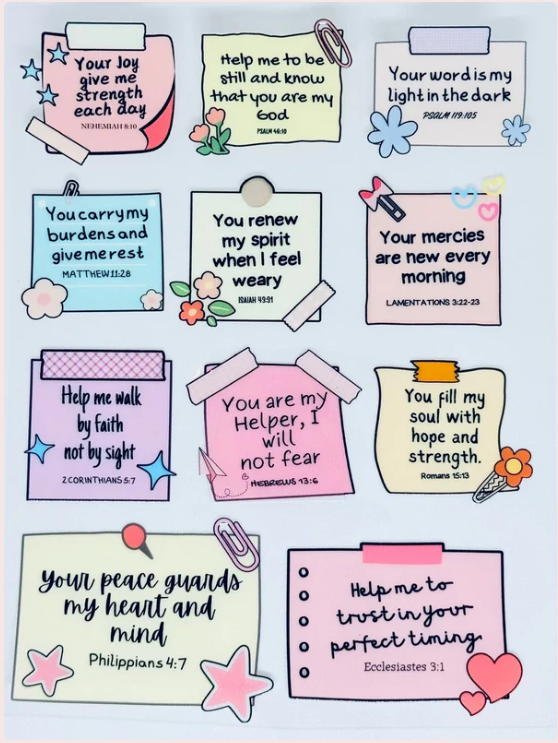 Your Joy
give me
strength
each day
NEHEMIAH 8:10
Help me to be
still and know
that you are my
God
PSALM 46:10
Your word is my
light in the dark
PSALM 119:105
You carry my
burdens and
give me rest
MATTHEW 11:28
You renew
my spirit
when I feel
weary
ISAIAH 49:31
Your mercies
are new every
morning
LAMENTATIONS 3:22-23
Help me walk
by faith
not by sight
2 CORINTHIANS 5:7
You are my
Helper, I
will
not fear
HEBREWS 13:6
You fill my
soul with
hope and
strength.
Romans 15:13
Your peace guards
my heart and
mind
Philippians 4:7
Help me to
trust in your
perfect timing
Ecclesiastes 3:1